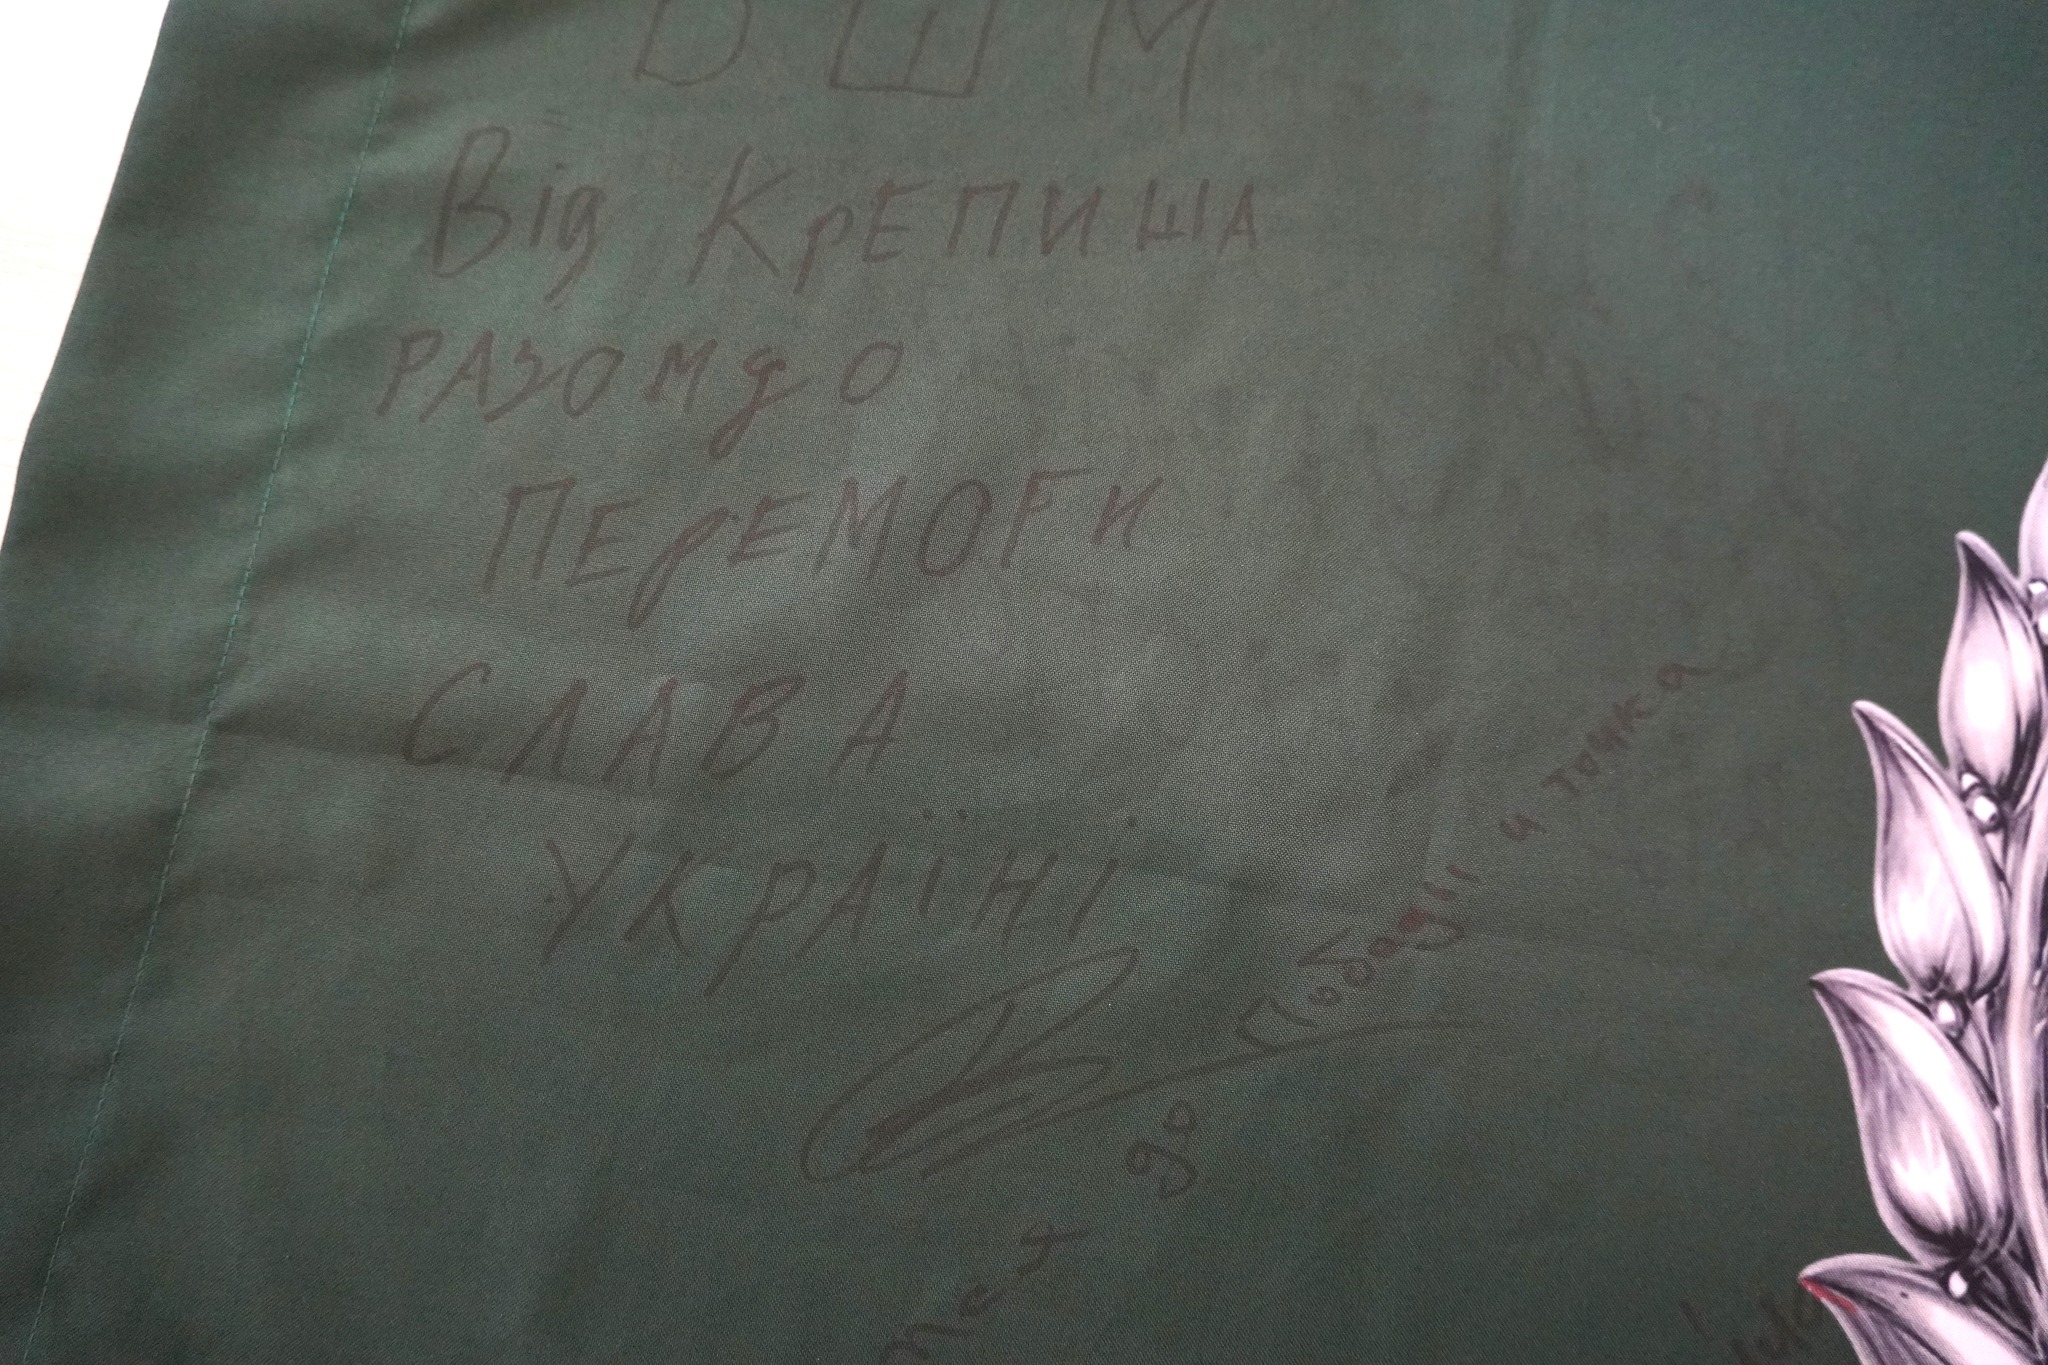 ВШМ
Від КрЕПИША
РАЗОМ до
ПЕрЕМОГИ
СЛАВА
УКРАЇНІ
до Победы и точка